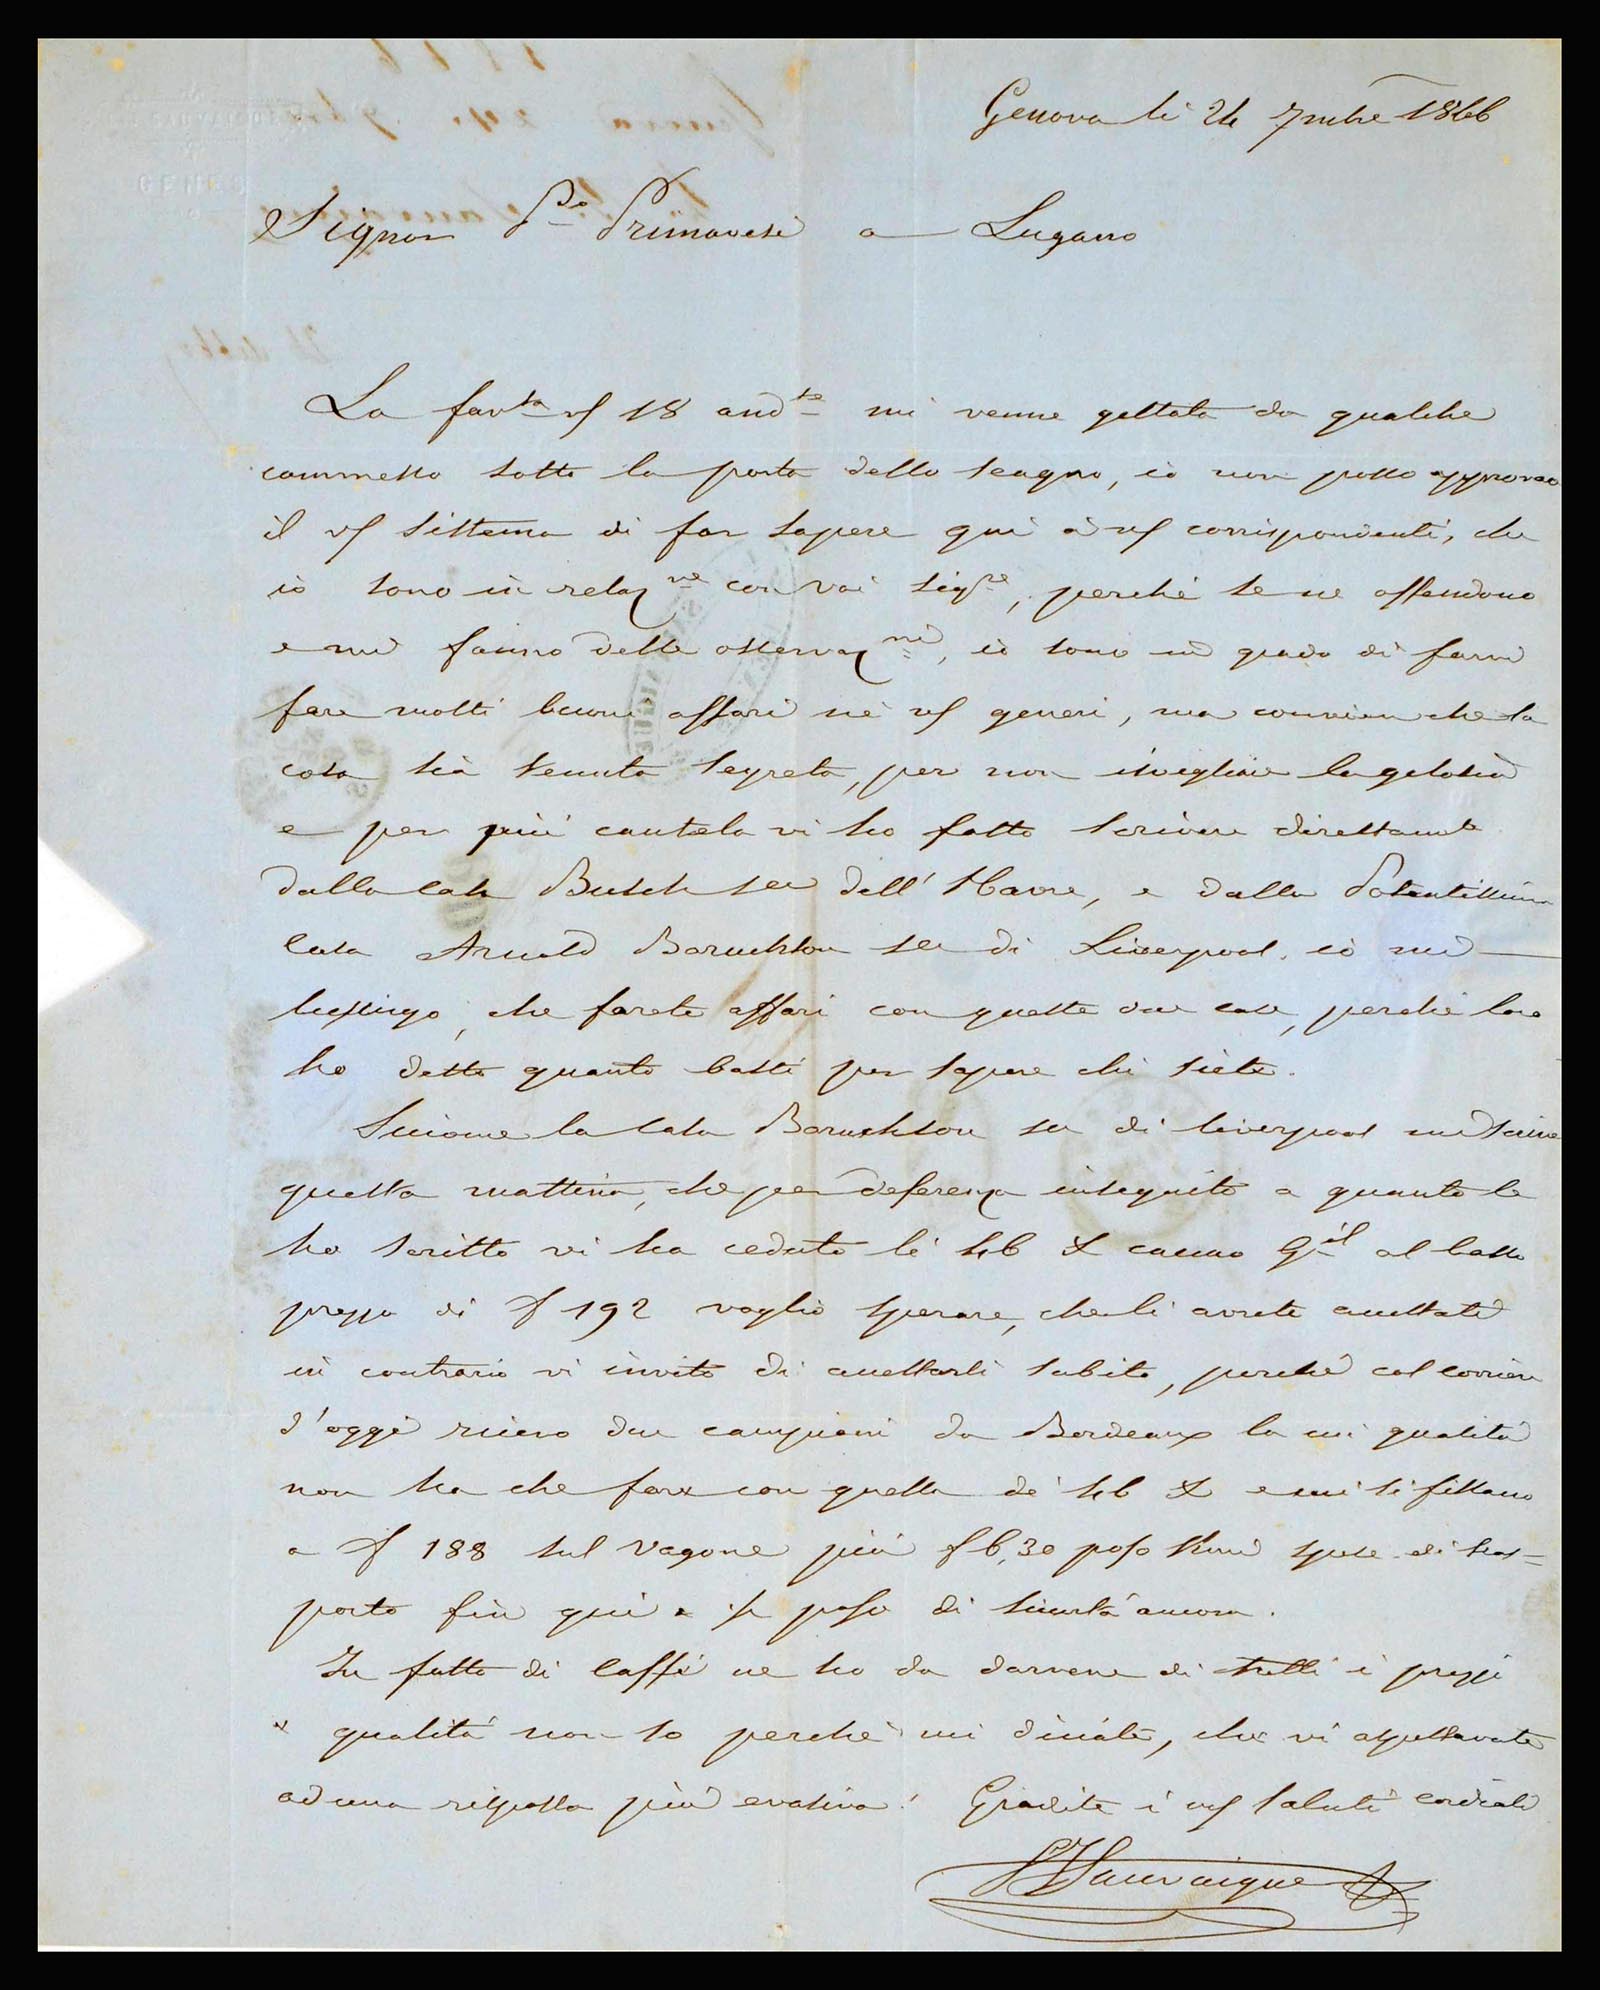 Genova li 24 7mbre 1866
Signor P. Primavesi a Lugano
La favta vs 18 andte mi venne gettata da qualche
commesso sotto la porta dello scagno, io non posso approvare
il vs sistema di far sapere qui a vs corrispondenti, che
io sono in relazne con voi sigre, perchè se ne offendono
e mi fanno delle osservazni, io sono in grado di farvi
fare molti buoni affari nè vs generi, ma convien che la
cosa sia tenuta segreta, per non isvegliare la gelosia
e per più cautela vi ho fatto scrivere direttamte
dalla Casa Busch dell' Havre, e dalla Potentissima
Casa Arnold Baruchson di Liverpool, io mi
lusingo, che farete affari con queste due case, perchè loro
ho detto quanto basti per sapere chi siete.
Siccome la Casa Baruchson di Liverpool mi scrive
questa mattina, che per deferenza inseguito a quanto le
ho scritto vi ha ceduto li 46 al basso
prezzo di f 192 voglio sperare, che li avrete accettati
in contrario vi invito di accettarli subito, perchè col corriere
d'oggi ricevo due campioni da Bordeaux la cui qualità
non ha che fare con quella de' 46 e mi si fissano
a f 188 sul vagone più f 6,30 spese di tras=
porto fin qui di sicurtà ancora.
In fatto di Caffè ne ho da darvene di tutti i prezzi
e qualità non so perchè mi diciate, che vi aspettavate
ad una risposta più evasiva! Gradite i saluti cordiali
Sauvaigue
GENES